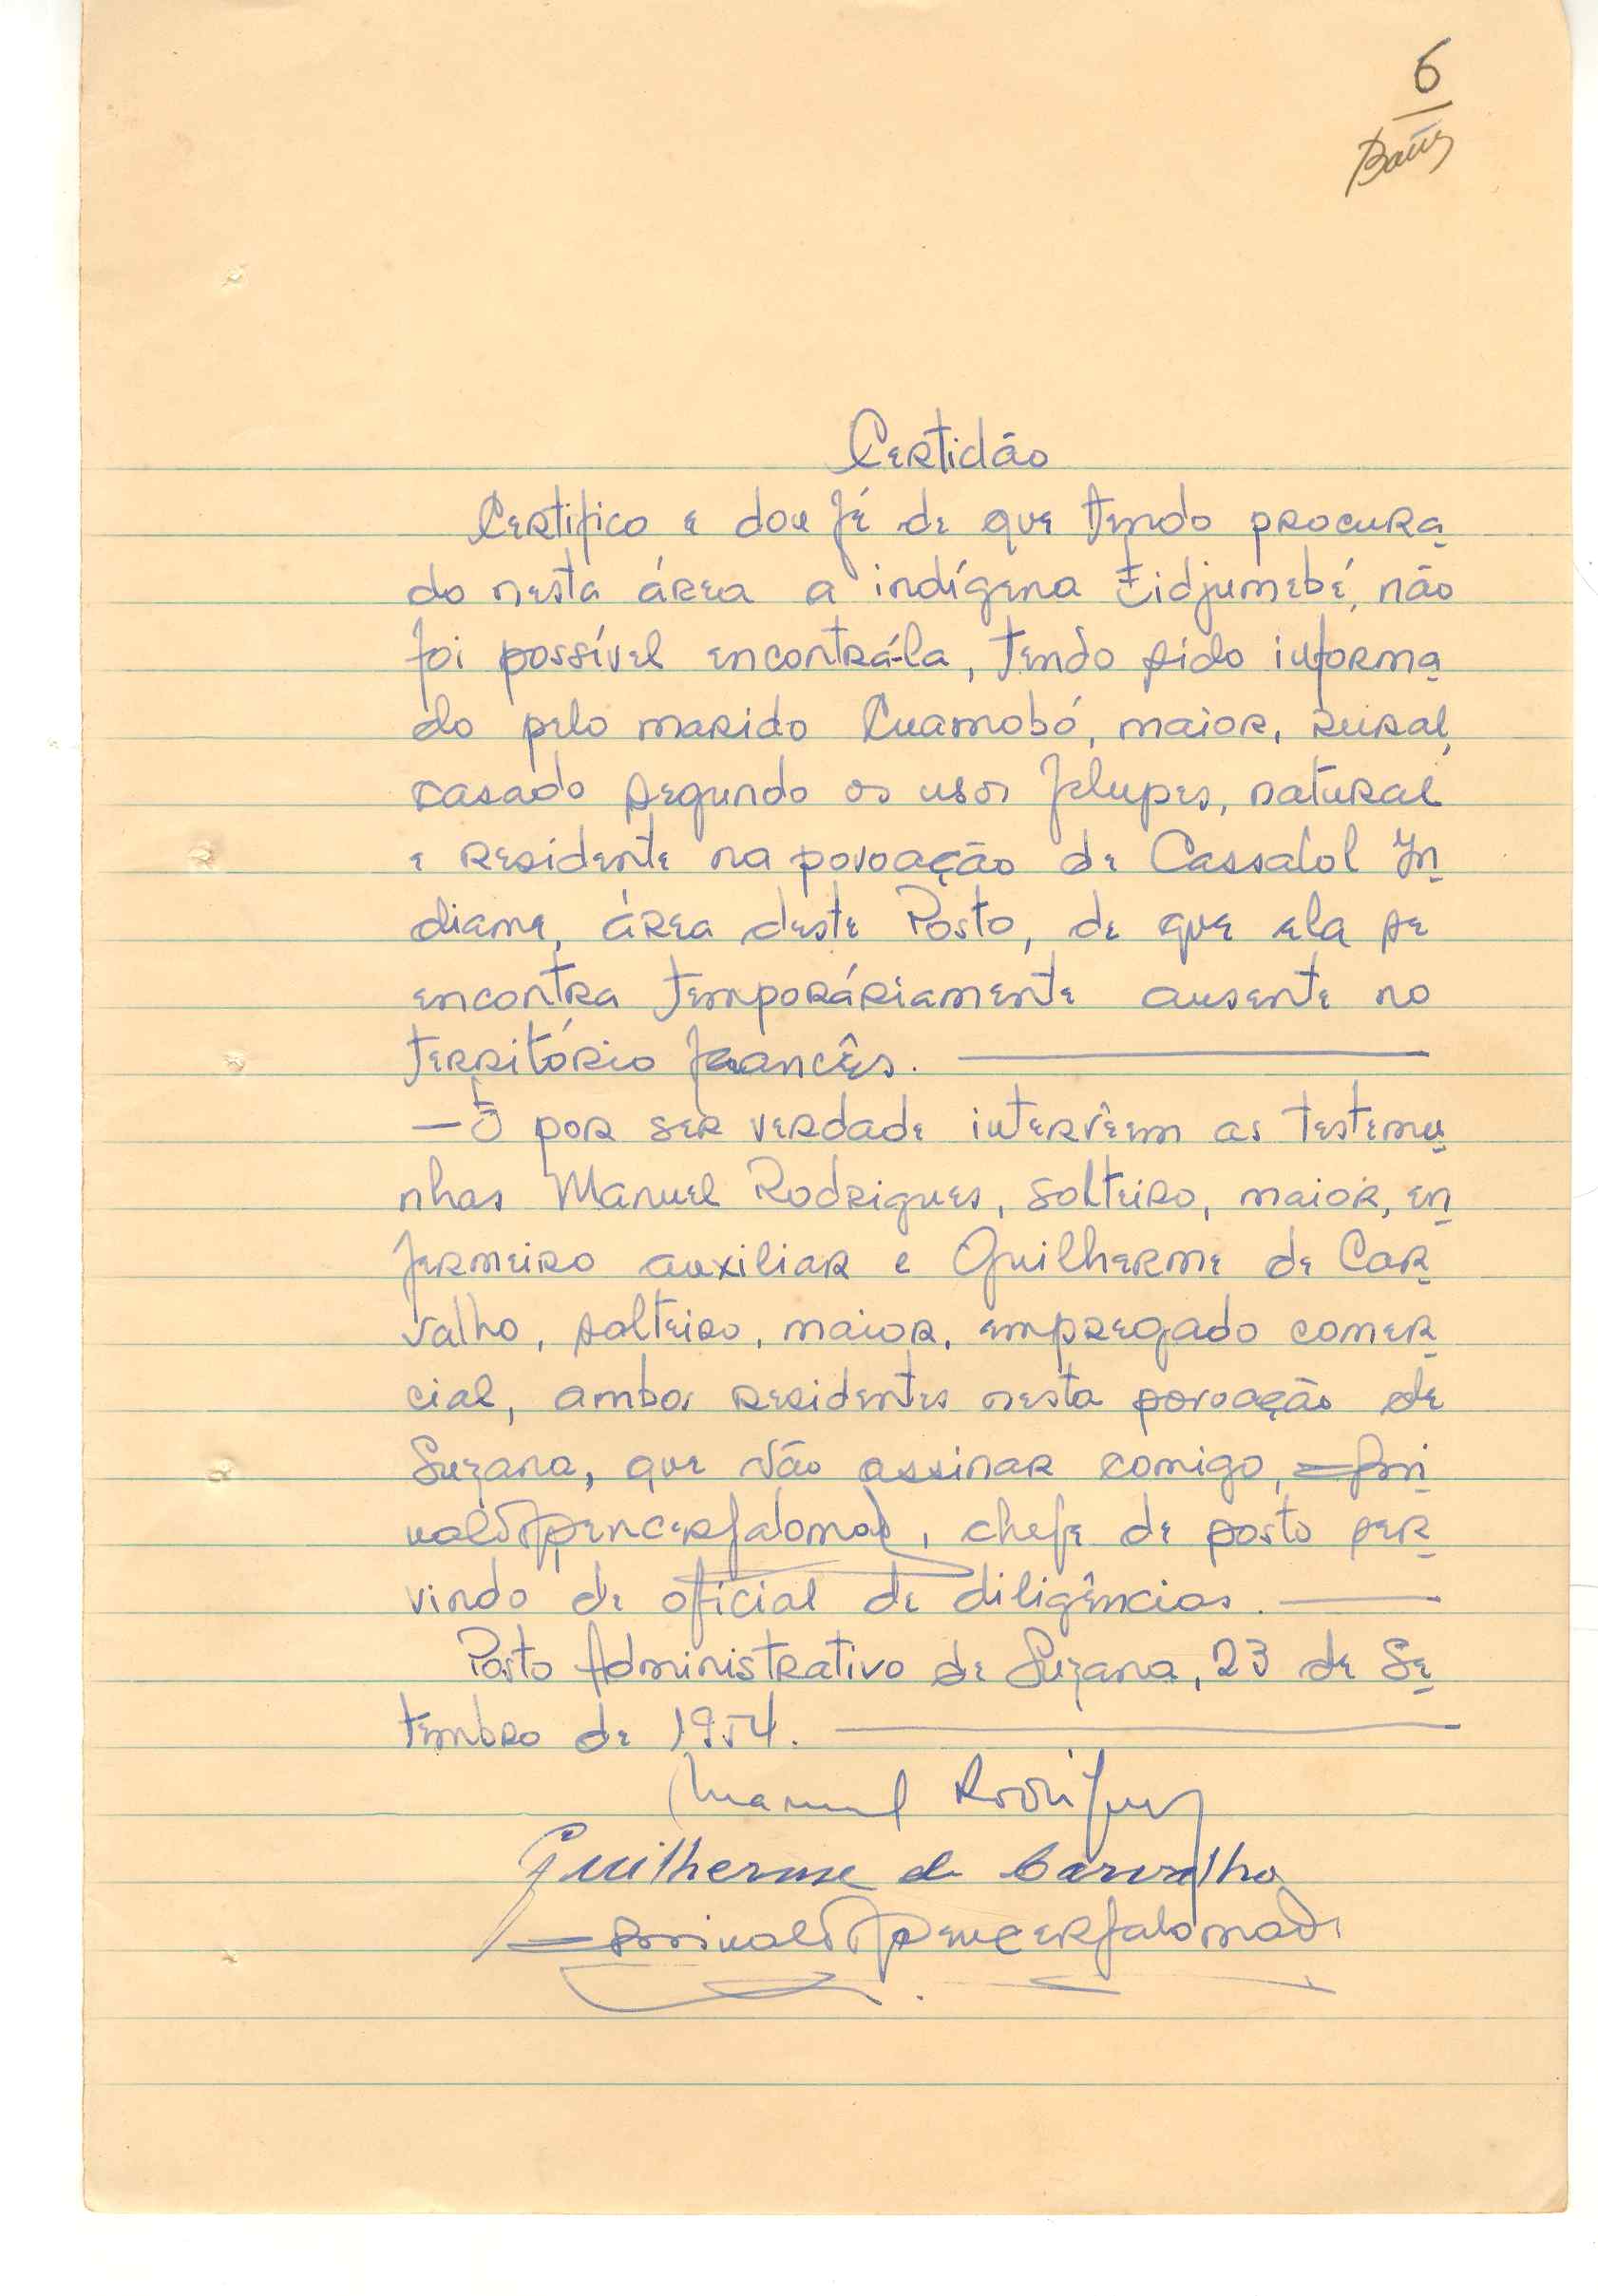 6
Certidão
Certifico e dou fé de que tendo procura
do nesta área a indígena Eidjumebé, não
foi possível encontrá-la, tendo sido informa
do pelo marido Cuamobó, maior, rural,
casado segundo os usos felupes, natural
e residente na povoação de Cassalol In
diame, área deste Posto, de que ela se
encontra temporáriamente ausente no
território francês.
— E por ser verdade intervêem as testemu
nhas Manuel Rodrigues, solteiro, maior, en
fermeiro auxiliar e Guilherme de Car
valho, solteiro, maior, empregado comer
cial, ambos residentes nesta povoação de
Suzana, que vão assinar comigo,
, chefe de posto ser
vindo de oficial de diligências.
Posto Administrativo de Suzana, 23 de Se
tembro de 1954.
Manuel Rodrigues
Guilherme de Carvalho